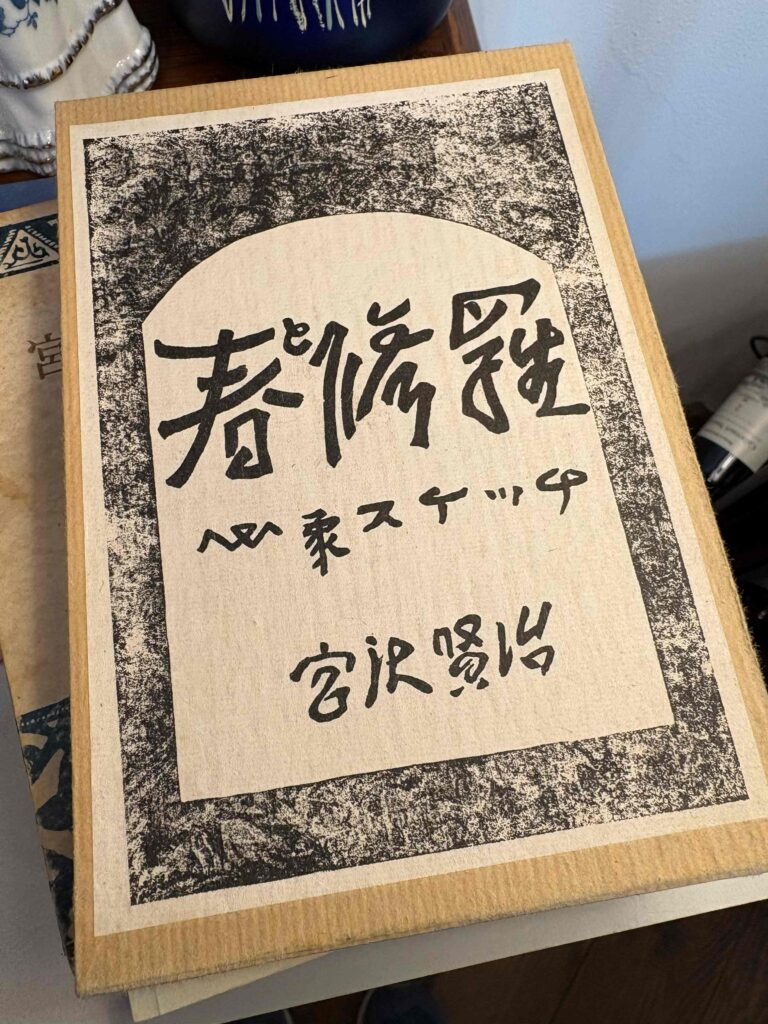 春と修羅
心象スケッチ
宮沢賢治
宮